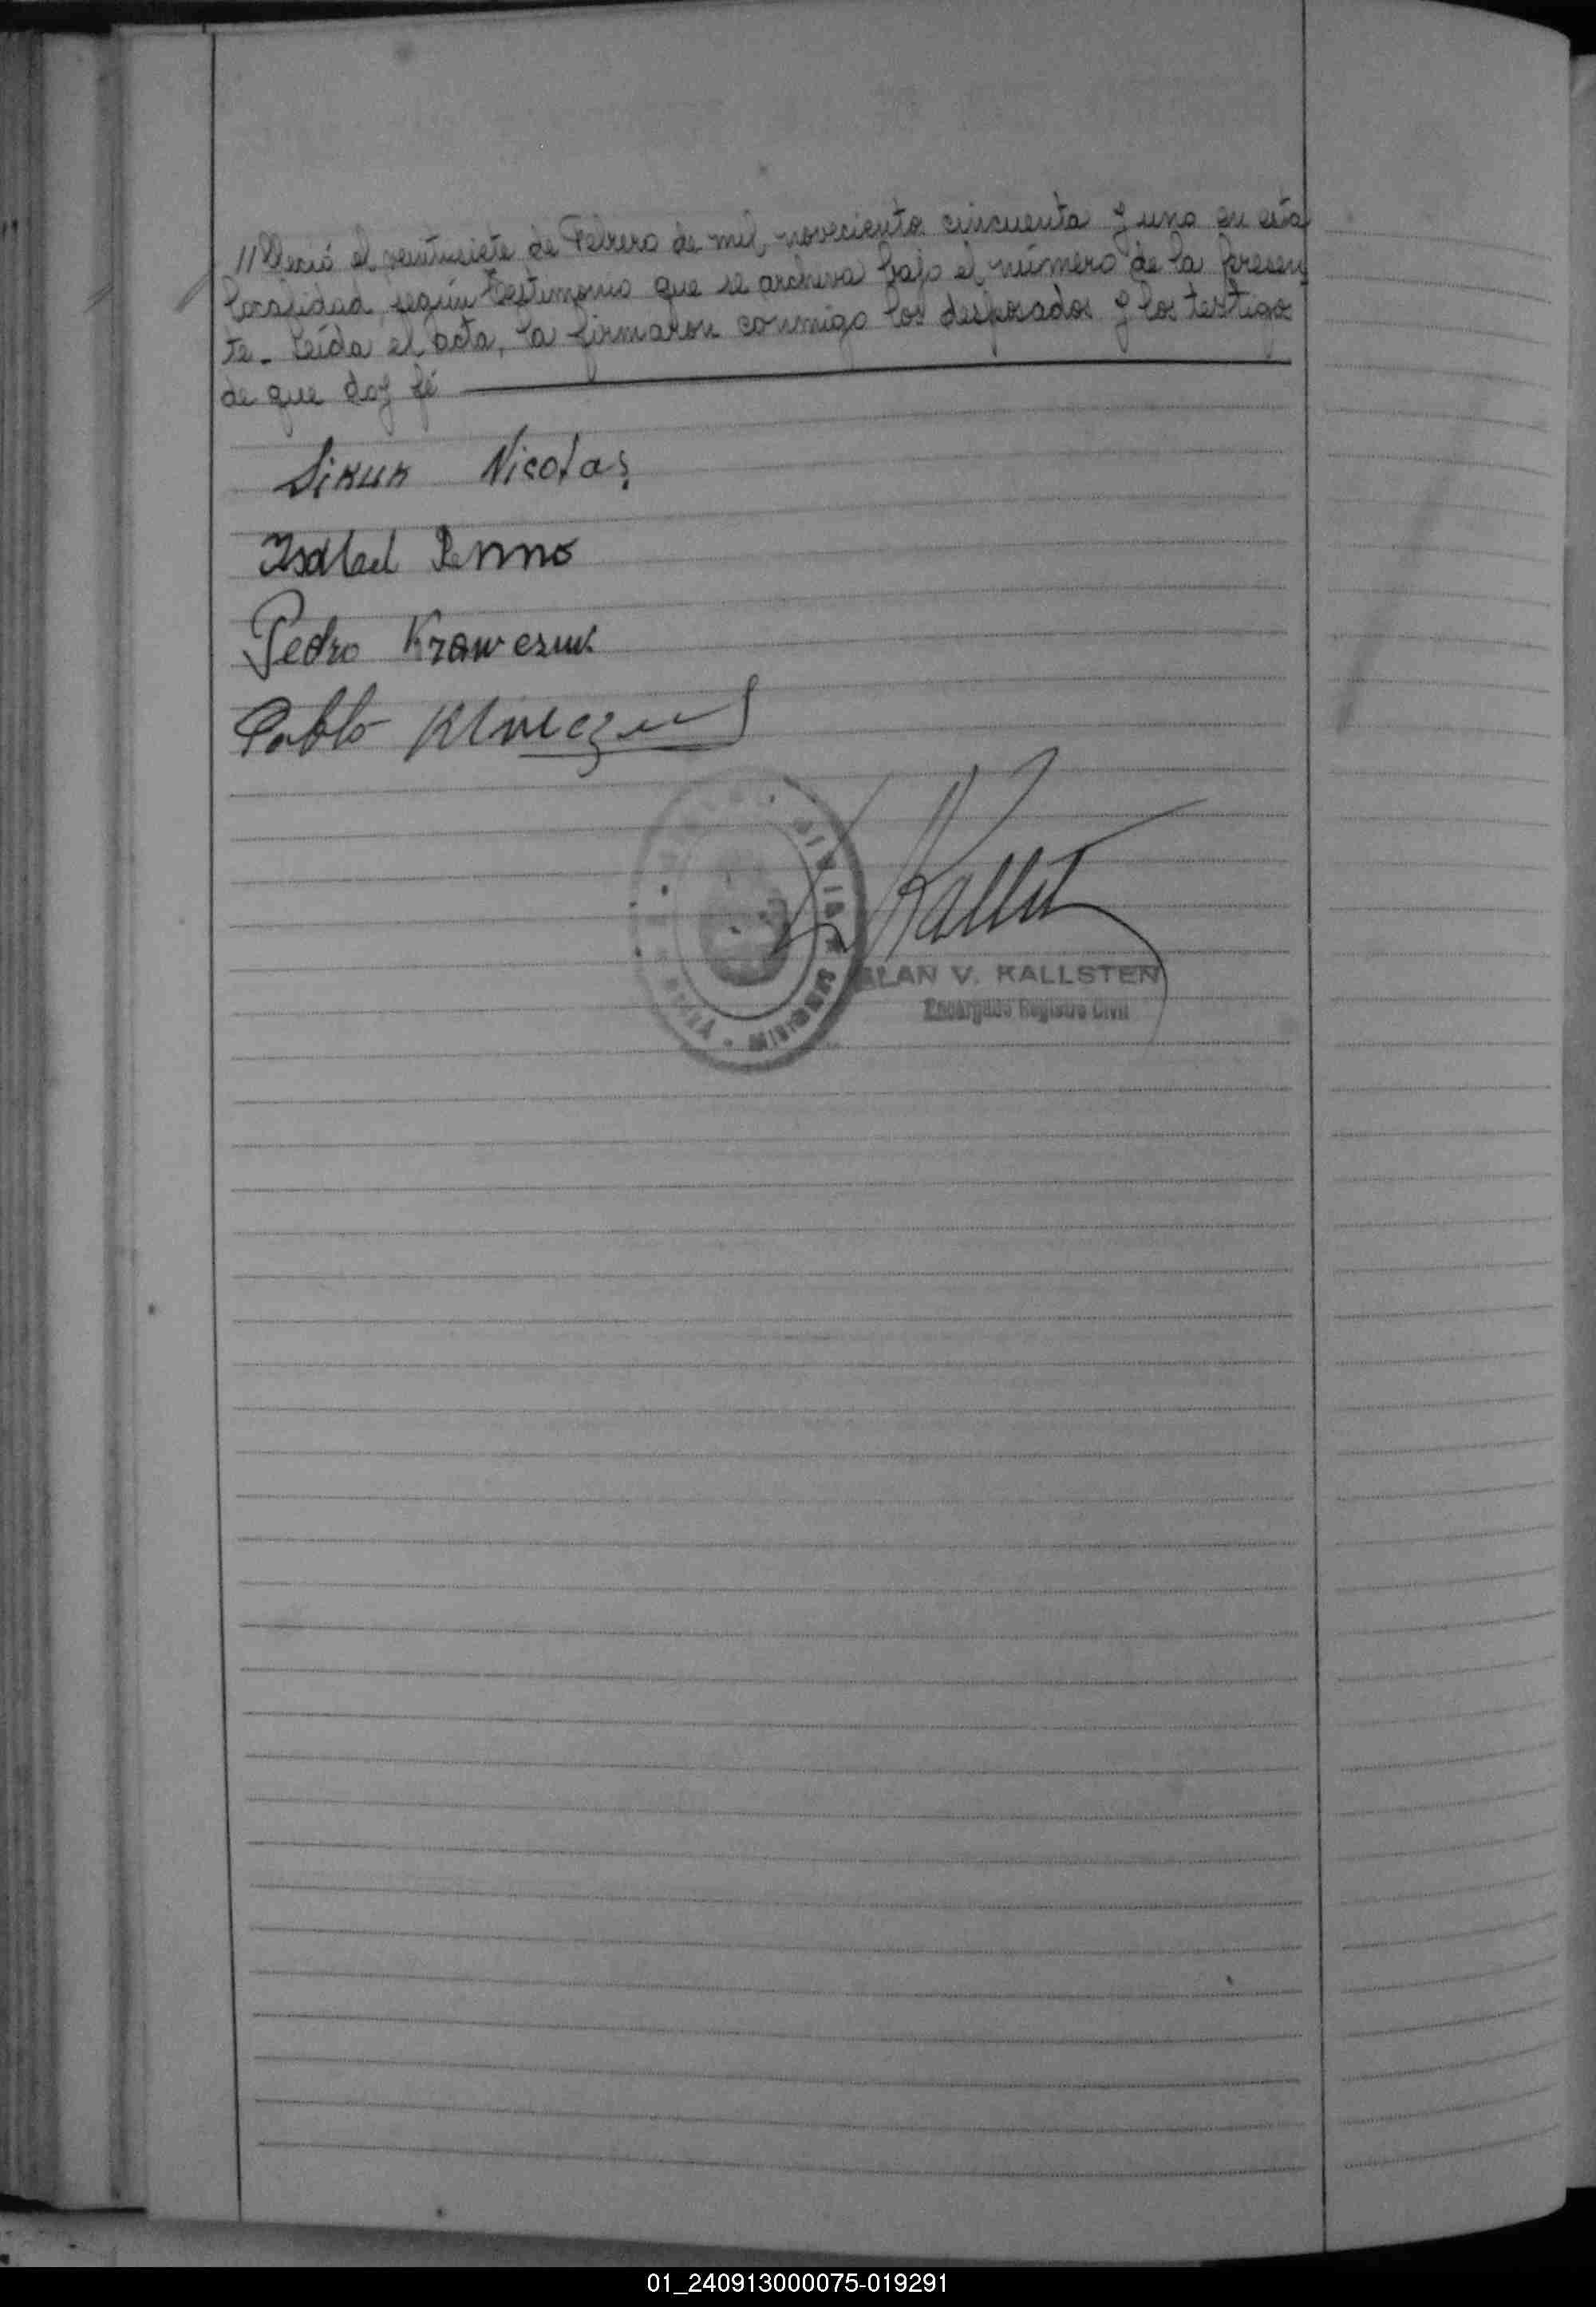 //lleció el veintisiete de Febrero de mil novecientos cincuenta y uno en esta
localidad, según testimonio que se archiva bajo el número de la presen
te - Leída el acta, la firmaron conmigo los desposados y los testigos
de que doy fé
Sikuk Nicolas
Isabel Penno
Pedro Krawczuk
Pablo
ALAN V. KALLSTEN
Encargado Registro Civil
MISIONES
01_240913000075-019291